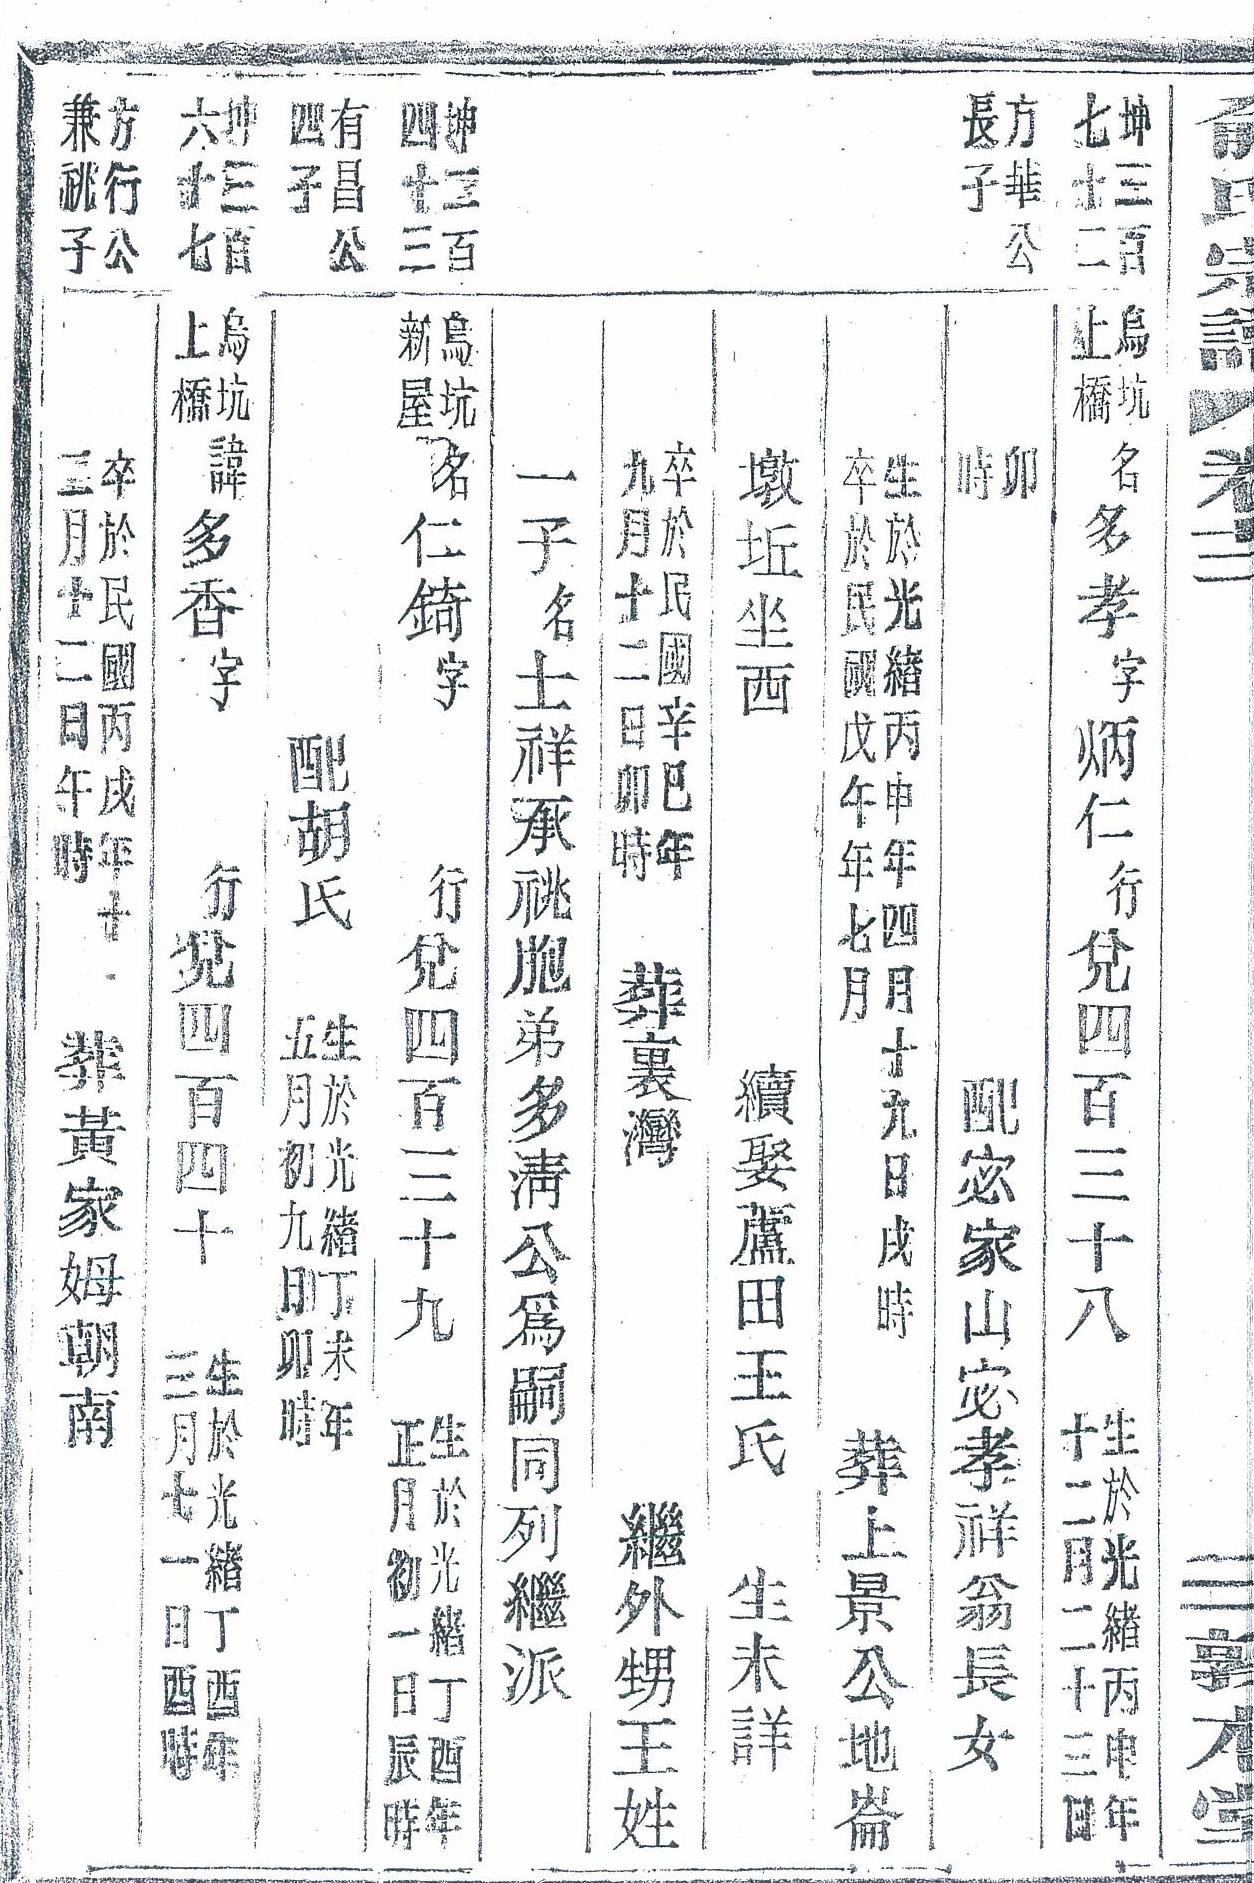 俞氏宗譜 卷二 三 敦本堂
坤三百七十二 烏坑上橋 名多孝字炳仁行兌四百三十八 生於光緒丙申年十二月二十三日
方華公長子 卯時 配宓家山宓孝祥翁長女
生於光緒丙申年四月十九日戌時 卒於民國戊午年七月 葬上景公地崙
墩坵坐西 續娶蘆田王氏 生未詳
卒於民國辛巳年九月十二日卯時 葬裏灣 繼外甥王姓
一子名士祥承祧胞弟多淸公爲嗣同列繼派
坤三百四十三 烏坑新屋 名仁錡字 行兌四百三十九 生於光緒丁酉年正月初一日辰時
有昌公四子 配胡氏 生於光緒丁未年五月初九日卯時
坤三百六十七 烏坑上橋 諱多香字 行兌四百四十 生於光緒丁酉年三月七一日酉時
方行公兼祧子 卒於民國丙戌年十 三月十二日午時 葬黃家姆朝南